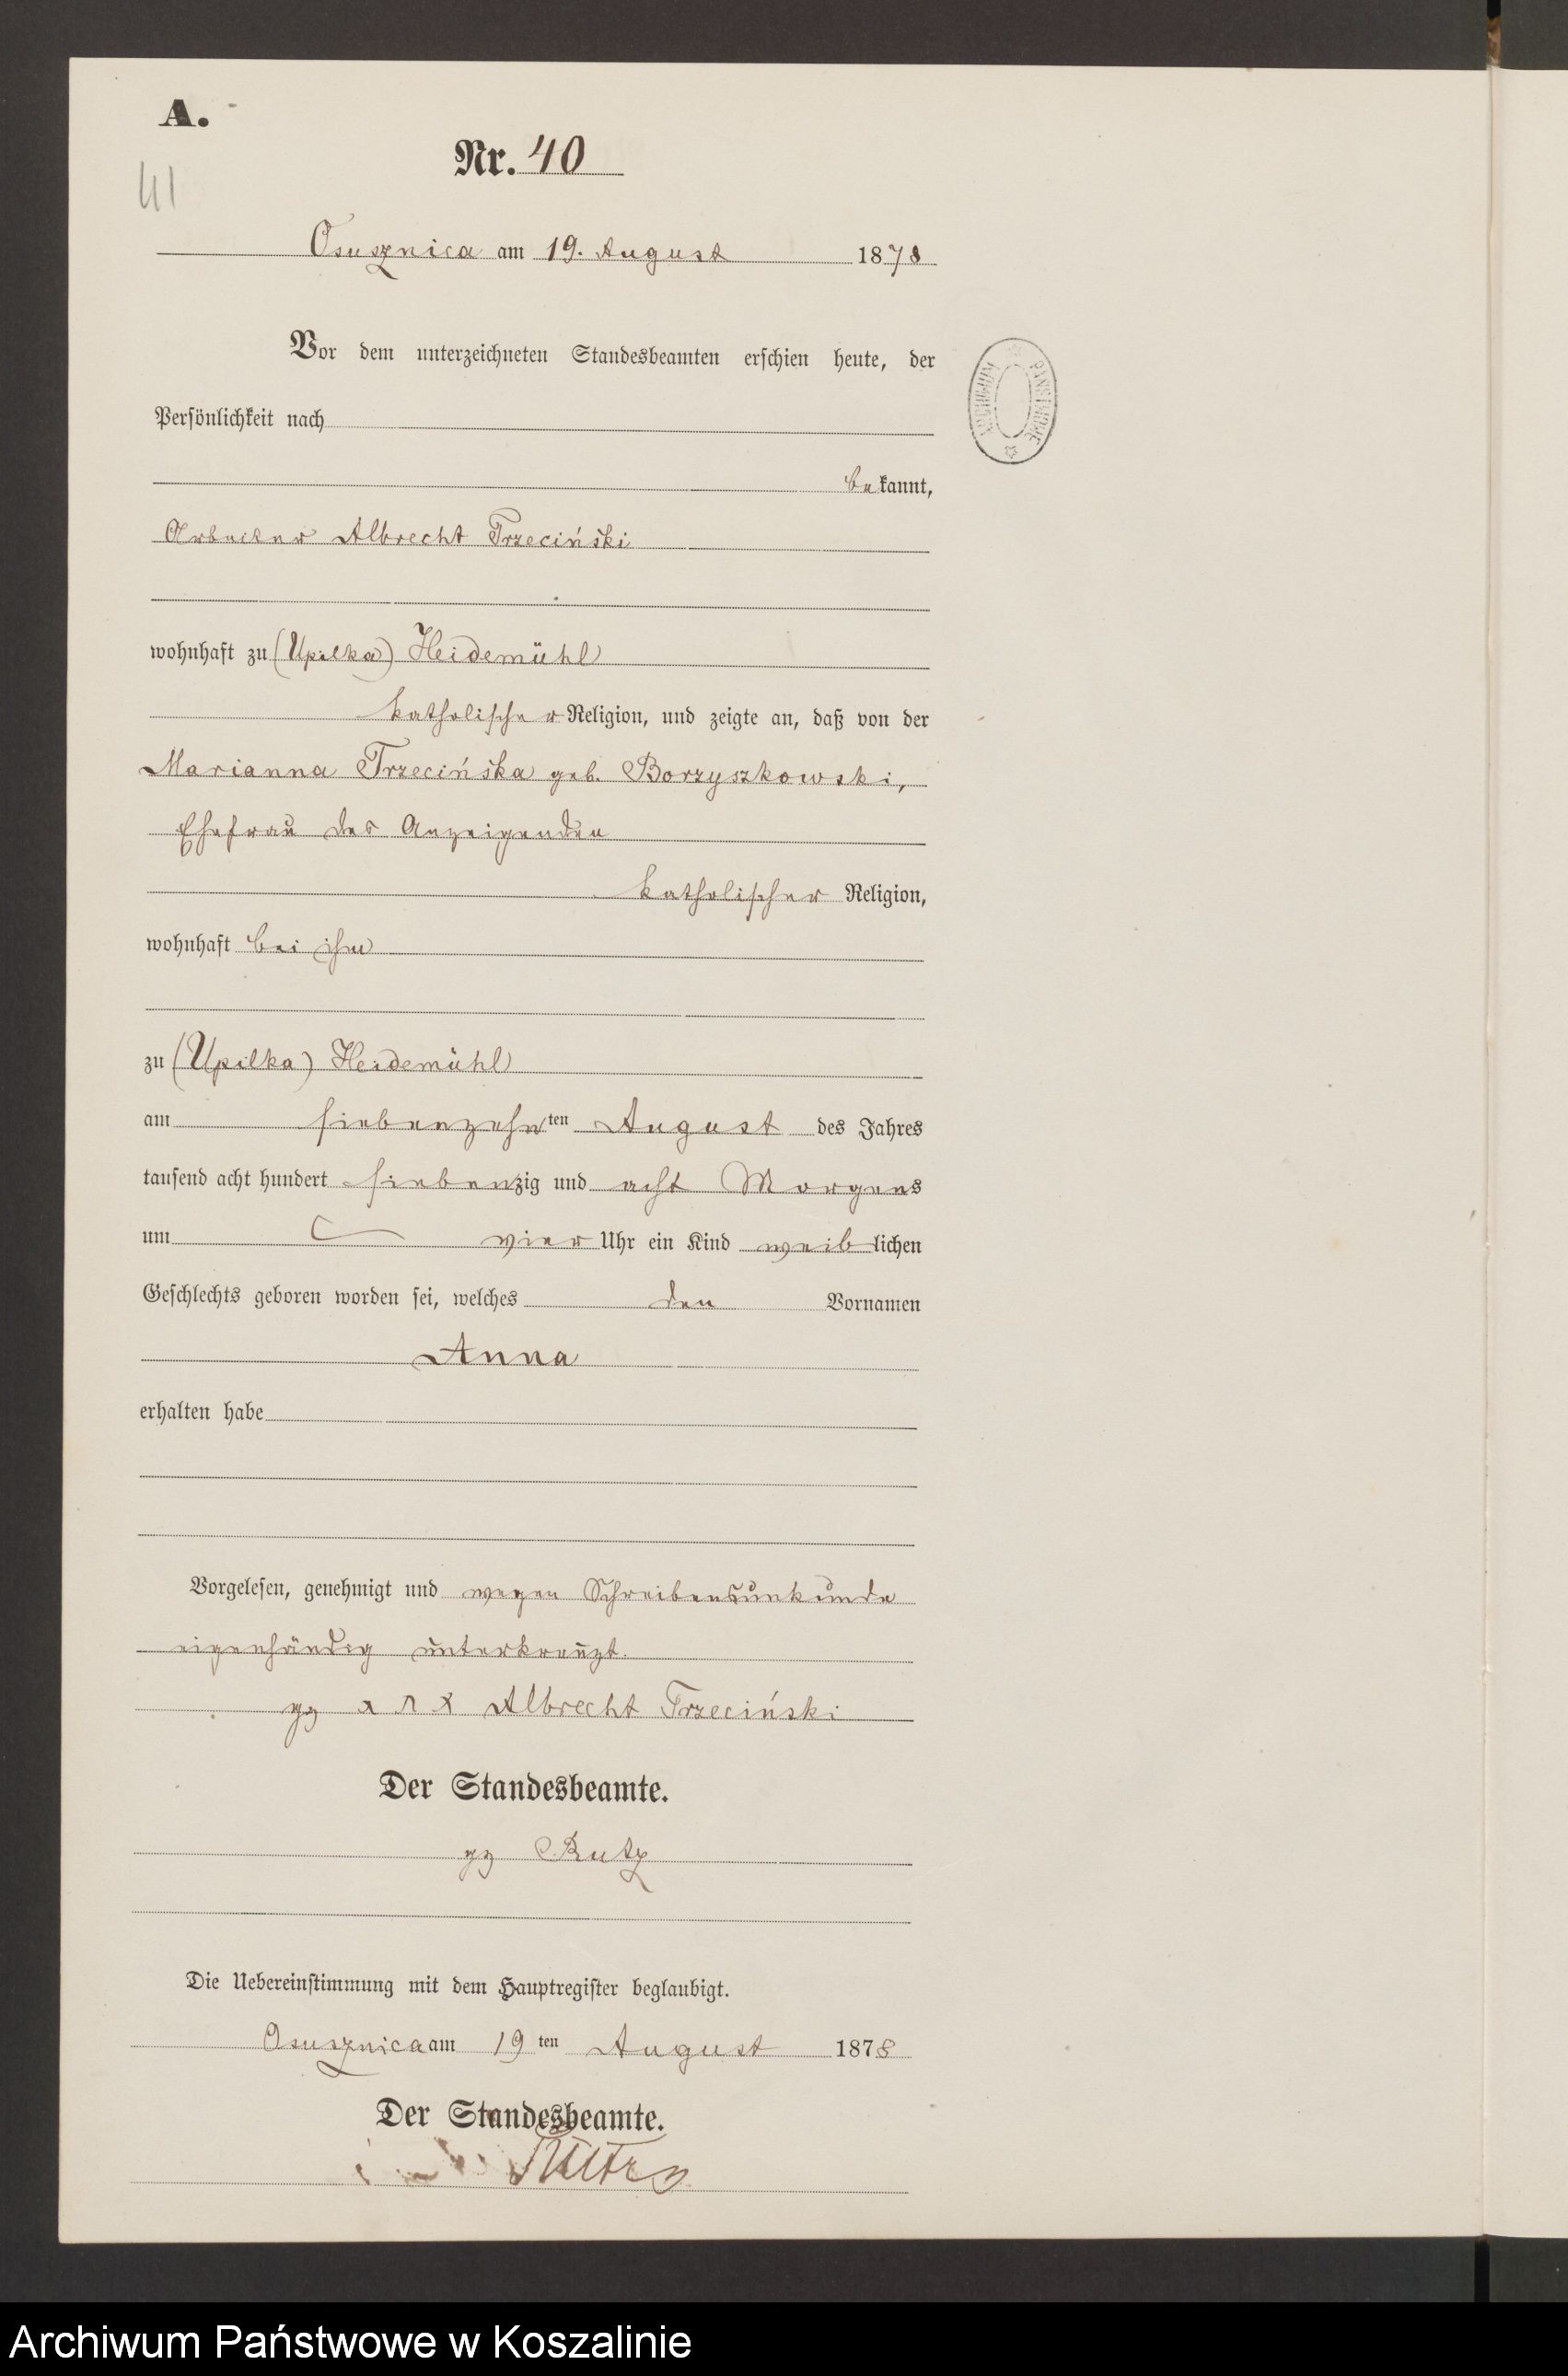 A.
Nr. 40
41
Osusznica am 19. August 1878
Vor dem unterzeichneten Standesbeamten erschien heute, der
Persönlichkeit nach
bekannt,
Arbeiter Albrecht Trzeciński
wohnhaft zu (Upilka) Heidemühl
katholischer Religion, und zeigte an, daß von der
Marianna Trzecińska geb. Borzyszkowski,
Ehefrau des Anzeigenden
katholischer Religion,
wohnhaft bei ihm
zu (Upilka) Heidemühl
am siebenzehnten August des Jahres
tausend acht hundert siebenzig und acht Morgens
um vier Uhr ein Kind weiblichen
Geschlechts geboren worden sei, welches den Vornamen
Anna
erhalten habe
Vorgelesen, genehmigt und wegen Schreibensunkunde
eigenhändig unterkreuzt.
gz x x x Albrecht Trzeciński
Der Standesbeamte.
gz Rutz
Die Uebereinstimmung mit dem Hauptregister beglaubigt.
Osusznica am 19ten August 1878
Der Standesbeamte.
ARCHIWUM PAŃSTWOWE
Archiwum Państwowe w Koszalinie